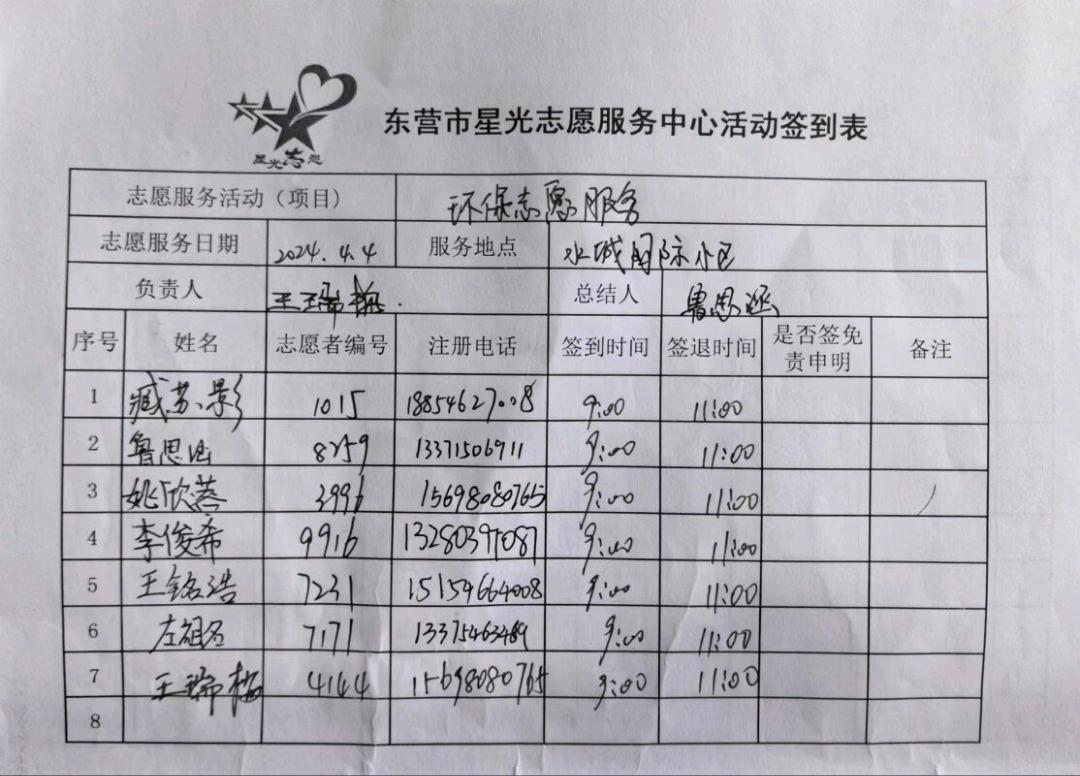 星光志愿
东营市星光志愿服务中心活动签到表
志愿服务活动（项目） 环保志愿服务
志愿服务日期 2024.4.4 服务地点 水城国际小区
负责人 王瑞梅. 总结人 鲁思涵
序号 姓名 志愿者编号 注册电话 签到时间 签退时间 是否签免责申明 备注
1 臧苏影 1015 18854627008 9:00 11:00
2 鲁思涵 8259 13371506911 9:00 11:00
3 姚欣蕊 3996 15698080765 9:00 11:00
4 李俊希 9916 13280397087 9:00 11:00
5 王铭浩 7231 15154664008 9:00 11:00
6 左祖名 7171 13375463489 9:00 11:00
7 王瑞梅 4144 15698080765 9:00 11:00
8